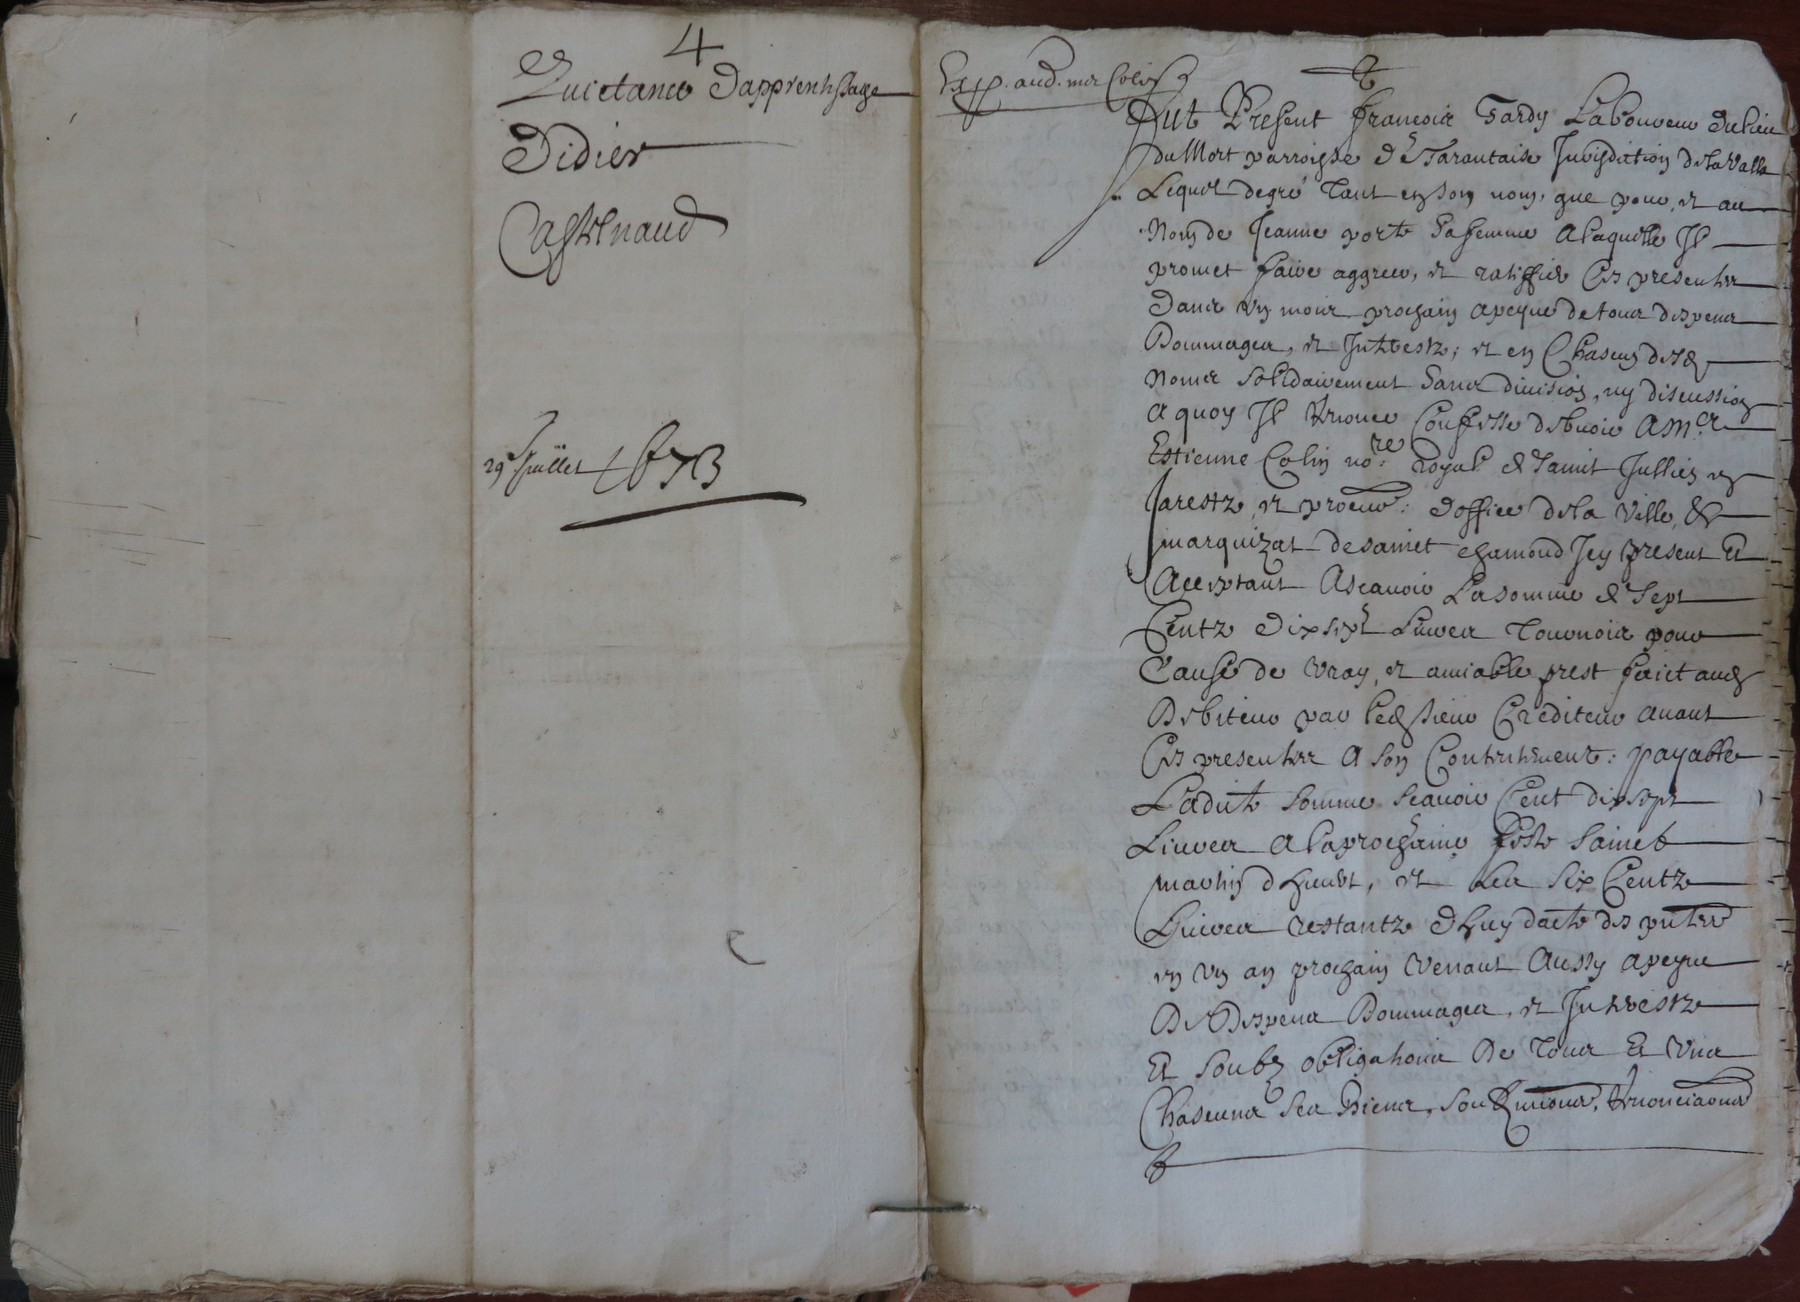 4
Quictance Dapprentissage
Didier
Castelnaud
29 Juillet 1673
Exp. aud. me Colin
Fut Present francois Tardy Laboureur du lieu
du Mort parroisse de Tarantaise Jurisdiction de la Valla
Lequel de gré tant en son nom, que pour, et au
Nom de Jeanne porte sa femme a laquelle Il
promet faire aggreer, et ratiffier Ces presentes
dans un mois prochain a peyne de tous despens
Dommages, et Interestz; et en Chascun desd
Noms solidairement sans division, ny discussion
a quoy Il renonce Confesse debvoir a Me
Estienne Colin nore royal de Sainct Jullien en
Jarestz, et procur: doffice de la Ville, &
marquizat de sainct chamond Icy present Et
Acceptant Ascavoir La somme de Sept
Centz Dix sept Livres Tournois pour
Cause de vray, et amiable prest faict aud
Debiteur par led sieur Crediteur avant
Ces presentes a son Contentement: payable
Ladite somme scavoir Cent dix sept
Livres a la prochaine feste Sainct
martin dhyvert, et Les six Centz
Livres restantz dhuy datte des pntes
en un an prochain venant Aussy a peyne
De Despens Dommages, et Interestz
Et soubz obligations De Tous Et uns
Chascuns ses Biens, soubzmissions, renonciaons